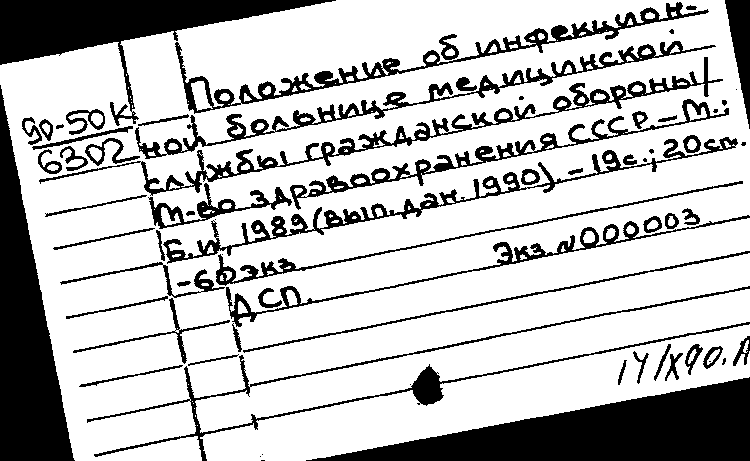 90-50К
6302
Положение об инфекцион-
ной больнице медицинской
службы гражданской обороны/
М-во здравоохранения СССР.-М.:
Б.и., 1989 (вып.дан.1990).-19с.; 20см.
-60экз.
ДСП. Экз.№000003
14/X90.